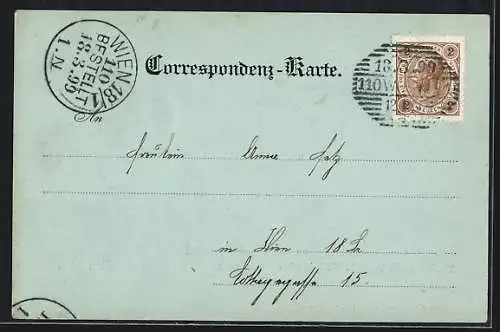 WIEN 18/1
110
BESTELLT
18.3.99
1.N
Correspondenz-Karte.
18.3.99
110 W
2 2
2 2
An
Fräulein Anna
in Wien 18
15.